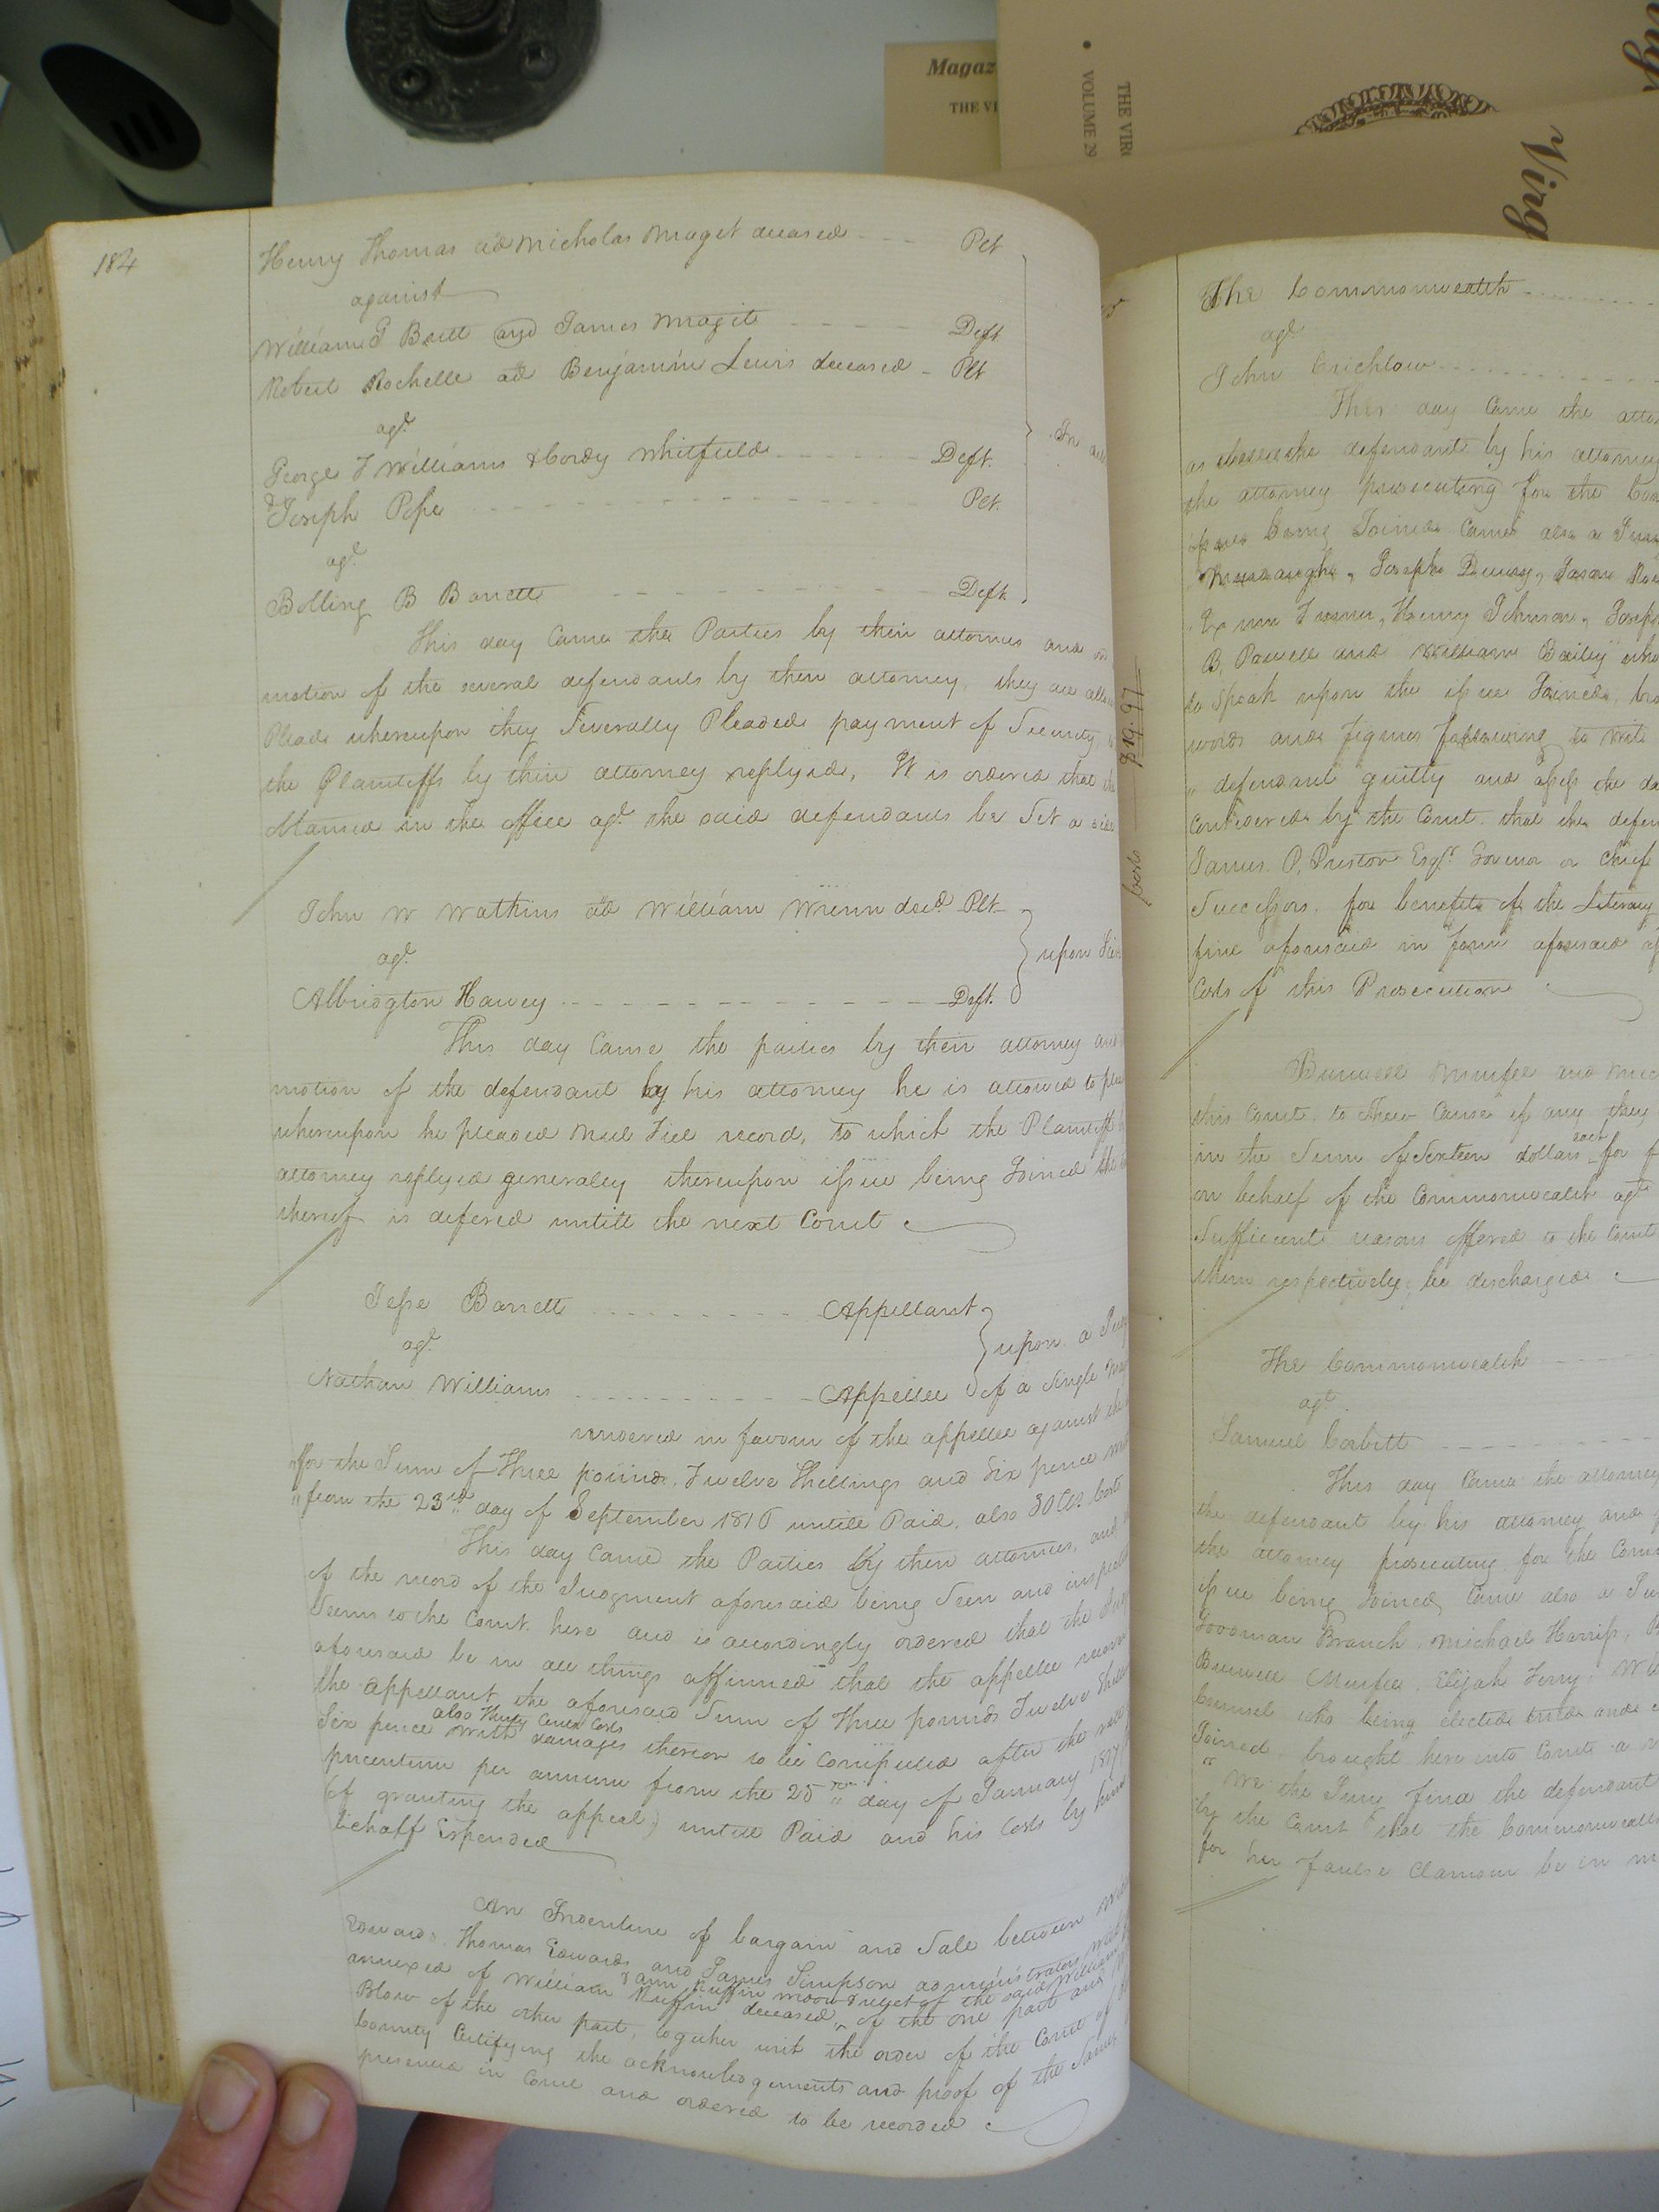 Magaz
THE VI
• VOLUME 29
THE VIR
Virg
184
Henry Thomas ad Micholas Maget deceased Plt
against
William G Britt and James Magett Deft
Robert Rochelle ad Benjamin Lewis deceased Plt
agt
George T Williams & Cordy Whitfield Deft.
Joseph Pope Plt.
agt
Bolling B Barrett Deft
This day Came the Parties by their attornies and on
motion of the several defendants by their attorney, they are
Plead whereupon they Severally Pleaded payment
the Plaintiffs by their attorney replyed, It is ordered that
in the office agt the said defendants be Set a side
John W Watkins ad William Wrenn decd Plt
agt
upon
Albridgton Harvey Deft.
This day Came the parties by their attorney and
motion of the defendant by his attorney he is allowed to
whereupon he pleaded Nul Tiel record, to which the Plaintiff
attorney replyed generaley thereupon issue being Joined
thereof is defered untill the next Court
Jesse Barrett Appellant
agt
upon a
Nathan Williams Appellee of a Single
rendered in favour of the appellee against the
for the Sum of Three pounds, Twelve Shillings and Six pence
from the 23rd day of September 1816 untill Paid, also 30 Cts Costs
This day Came the Parties By their attornies, and
of the record of the Judgment aforesaid being Seen and
Seems to the Court here and is accordingly ordered that the
aforesaid be in all things affirmed that the appellee
the appellant the aforesaid Sum of Three pounds Twelve
also Thirty Cents Costs
Six pence with damages thereon to be Computed after the
pcentum per annum from the 25 day of January
(of granting the appeal) untill Paid and his Costs by him
behalf Expended
An Indenture of bargain and Sale between
Edwards, Thomas Edwards and James Simpson administrators
& ann Ruffin widow & relict of the said William
annexed of William Ruffin deceased, of the one part and
Blow of the other part, together with the order of the Court of
County Certifying the acknowledgements and proof of the Same
presented in Court and ordered to be recorded
Costs $19.97
The Commonwealth
agt
John Crichlow
This day Came the
the defendant by his attorney
the attorney prosecuting for the
issue being Joined Came also a
Joseph Jason
Henry Johnson, Joseph
B, Powell and William Bailey who
to Speak upon the issue Joined,
words and figures following to wit
" defendant guilty and assess the
Considered by the Court that the
James P, Preston Esqr. Govenor or Chief
Successors for benefit of the Literary
fine aforesaid in form aforesaid
Costs of this Prosecution
Burwell Murfee and
this Court to Shew Cause if any they
each
in the Sum of Sixteen dollars for
on behalf of the Commonwealth agt
Sufficient reasons offered to the Court
them respectively, be discharged
The Commonwealth
agt
Samuel Corbitt
This day Came the attorney
the defendant by his attorney and
the attorney prosecuting for the
issue being Joined, Came also a
Goodman Branch, Michael Harriss,
Burwell Murfee, Elijah
who being elected tried and
Joined, brought here into Court a
" We the Jury find the defendant
by the Court that the Commonwealth
for her faulse Clamour be in